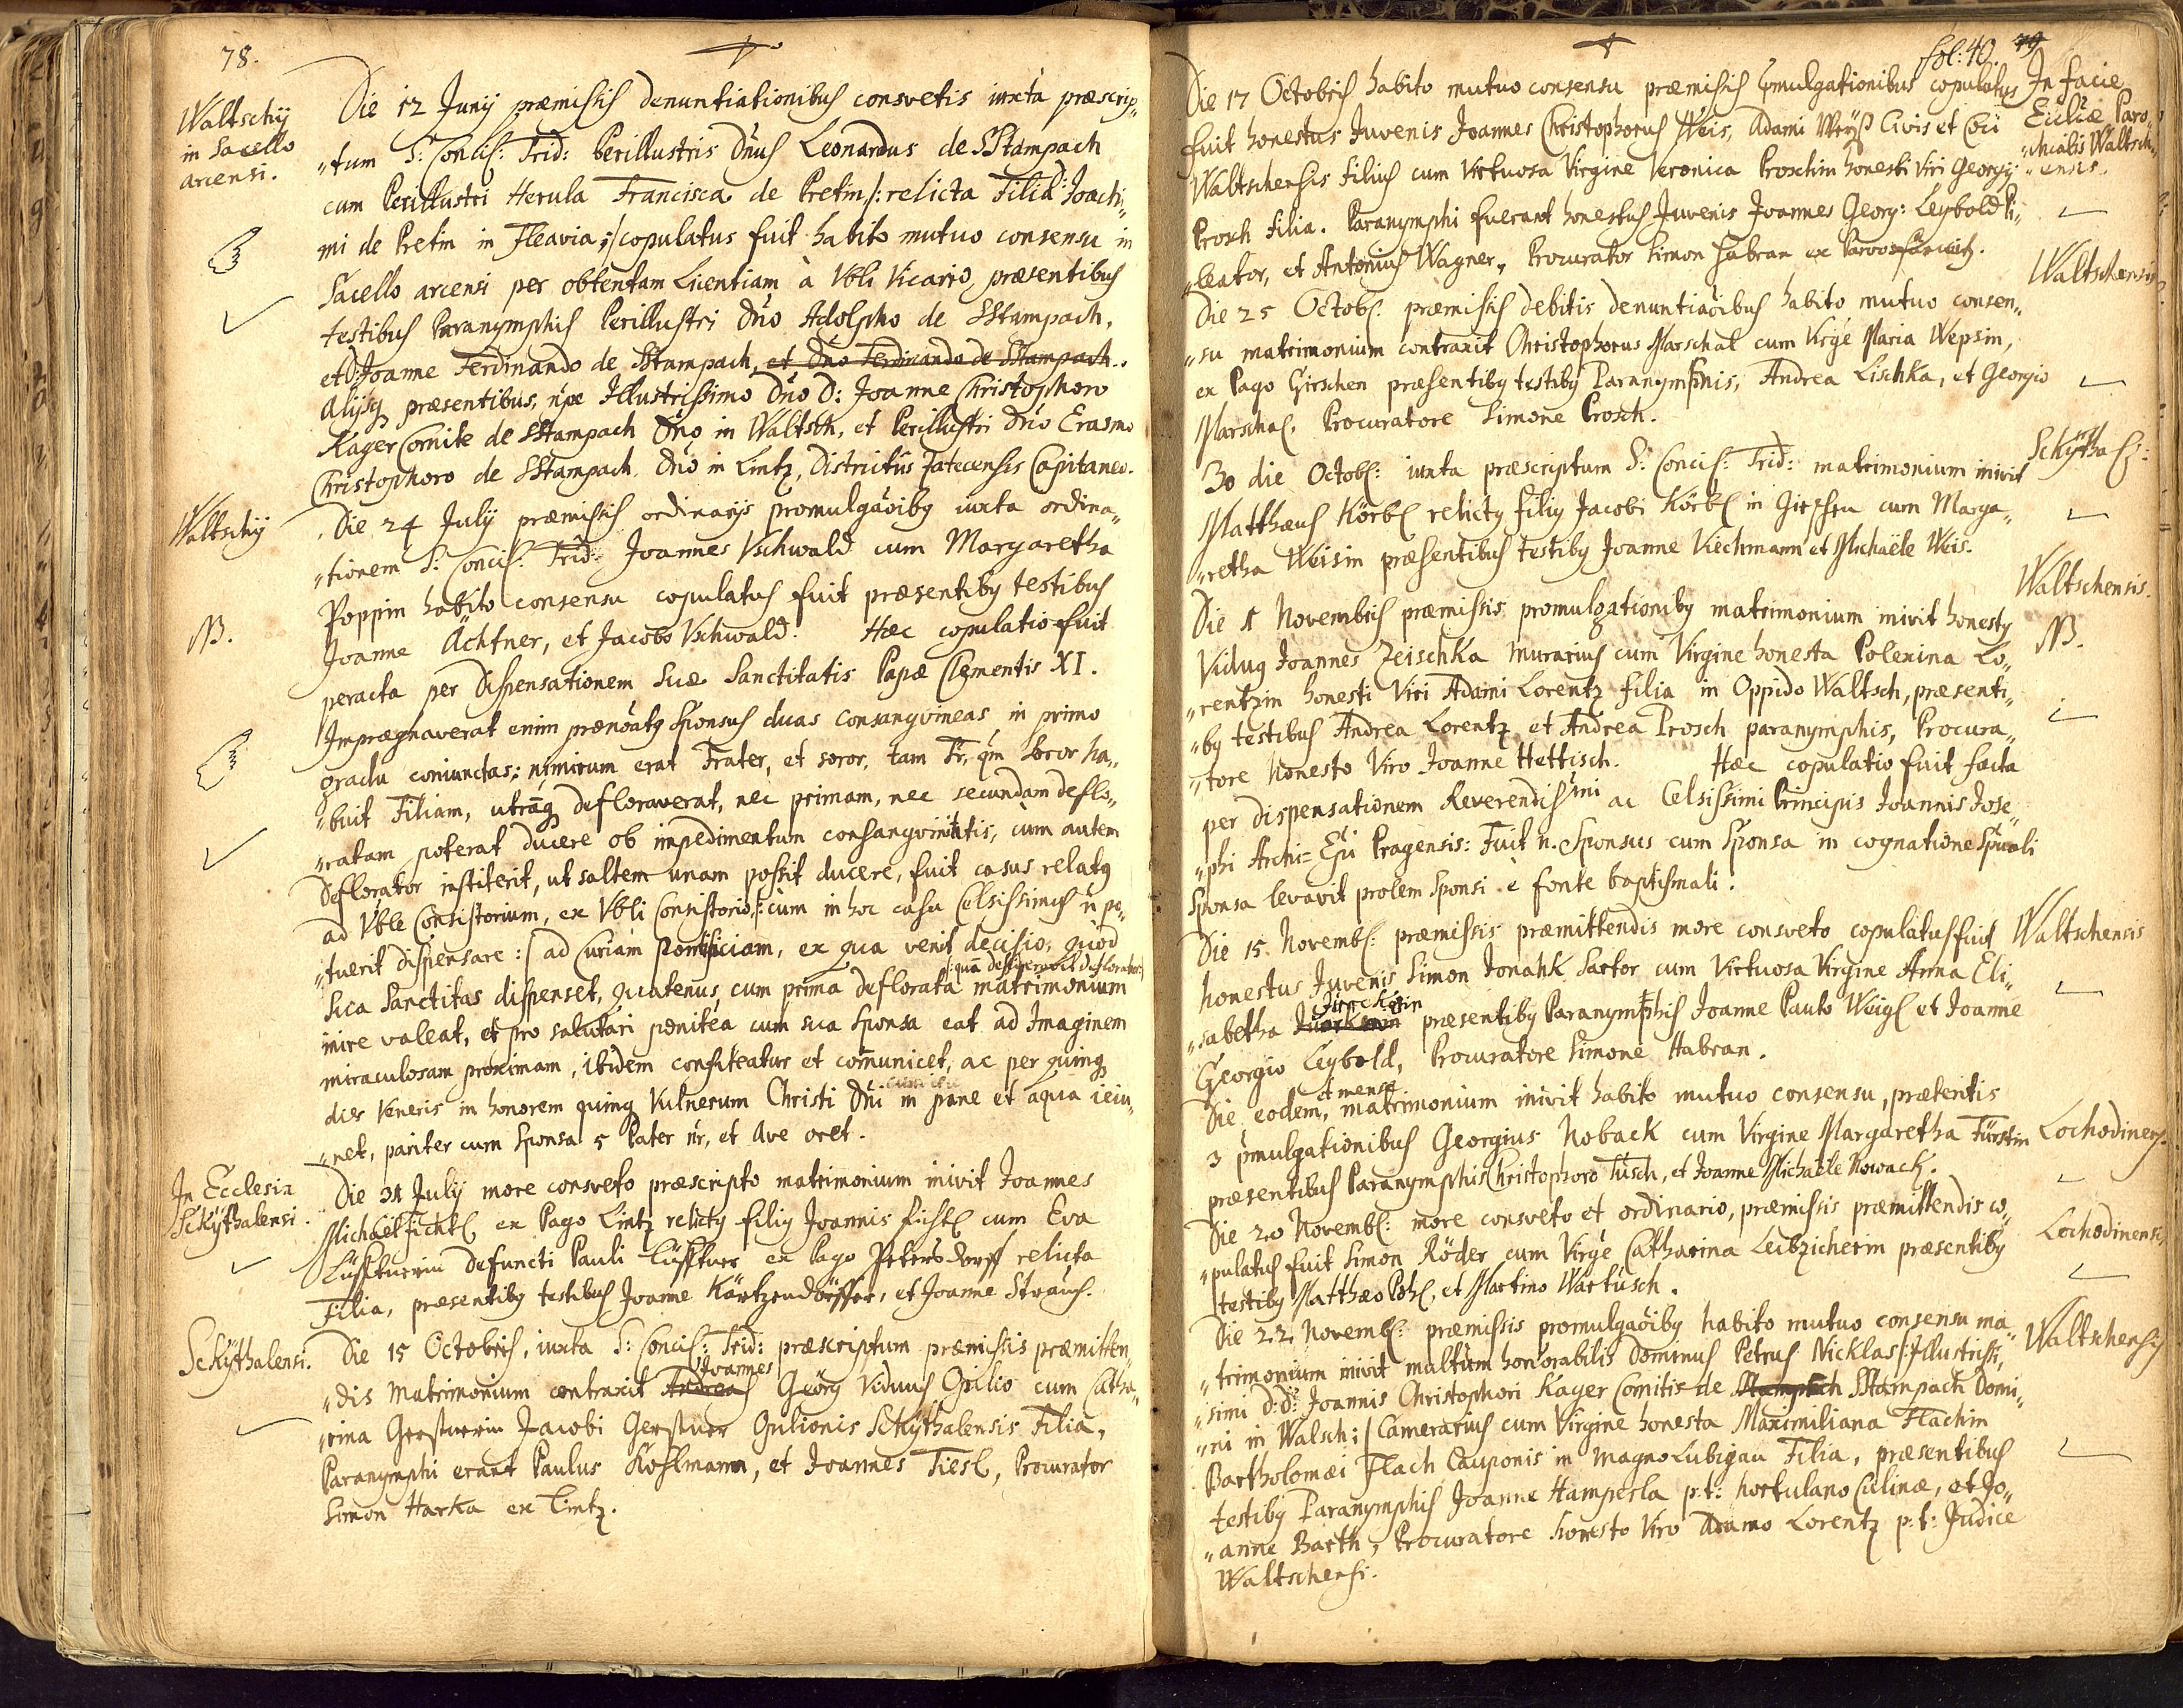 78.
Waltschij
in Sacello
arcensi.
Die 12 Junij præmissis denuntiationibus consvetis iuxta præscrip„
„tum S: Concil: Trid: Perillustris Dn̄us Leonardus de SStampach
cum Perillustri Herula Francisca de Pretin /: relicta Filia Joachi„
mi de Pretin in Fleavia :/ copulatus fuit habito mutuo consensu in
Sacello arcensi per obtentam Licentiam à Vbli Vicario, præsentibus
testibus Paranymphis Perillustri Dn̄o Adolpho de SStampach,
et D: Joanne Ferdinando de SStampach, et Dn̄o Ferdinando de SStampach.
Alijsq præsentibus, npe Illustrissimo Dn̄o D: Joanne Christophoro
Kager Comite de SStampach Dn̄o in Waltsch, et Perillustri Dn̄o Erasmo
Christophoro de SStampach Dn̄o in Lintz, Districtûs Zatecensis Capitaneo.
Waltschij
Die 24 Julij præmissis ordinarijs promulgaōibq iuxta ordina„
„tionem S: Concil: Trid: Joannes Vschwald cum Margaretha
NB.
Poppin habito consensu copulatus fuit præsentibq testibus
Joanne Ächtner, et Jacobo Vschwald. Hæc copulatio fuit
peracta per Dispensationem Suæ Sanctitatis Papæ Clementis XI.
Imprægnaverat enim prænoatq Sponsus duas consangvineas in primo
gradu coniunctas; nimirum erat Frater, et soror, tam Fr, qm Soror ha„
„buit Filiam, utramq defloraverat, nec primam, nec secundam deflo„
„ratam poterat ducere ob impedimentum consangvinitatis, cùm autem
Deflorator institerit, ut saltem unam possit ducere, fuit casus relatq
ad Vble Consistorium, ex Vbli Consistorio /: cùm in hoc casu Celsissimus n̄ po„
„tuerit dispensare :/ ad Curiam Pontificiam, ex qua venit decisio; quod
Sua Sanctitas dispenset, quatenus cum prima deflorata matrimonium
inire valeat, et pro salutari pœnitea cum sua Sponsa eat ad Imaginem
miraculosam proximam, ibidem confiteatur et com̄unicet, ac per quinq
dies Veneris in honorem quinq Vulnerum Christi Dn̄i in pane et aqua ieiu„
„net, pariter cum Sponsa 5 Pater nr, et Ave oret.
In Ecclesia
Sckijthalensi.
Die 31 Julij more consveto præscripto matrimonium inivit Joannes
Michaël Fichtl ex Pago Lintz relictq filiq Joannis Fichtl cum Eva
Lüfftnerin defuncti Pauli Lüfftner ex Pago Petersdorff relicta
Filia, præsentibq testibus Joanne Kärtzendörffer, et Joanne Strauß.
Sckijthalensi.
Die 15 Octobris, iuxta S: Concil: Trid: præscriptum præmissis præmitten„
„dis Matrimonium contraxit Andreas Joannes Georg Viduus Opilio cum Catha„
„rina Gerstnerin Jacobi Gerstner Opilionis Sckijthalensis Filia,
Paranymphi erant Paulus Kohlmann, et Joannes Tiesl, Procurator
Simon Harka ex Lintz.
fol: 40. 79
Die 17 Octobris habito mutuo consensu præmissis pmulgationibus copulatus
fuit honestus Juvenis Joannes Christophorus Weis, Adami Weyß Civis et
Waltschensis filius cum Virtuosa Virgine Veronica Proschin honesti Viri Georgij
Prosch filia. Paranymphi fuerant honestus Juvenis Joannes Georg: Leybold
„leator, et Antonius Wagner, Procurator Simon Habran ex
In facie
Eccliæ Paro„
„chialis Waltsch„
„ensis.
Waltschensis
Die 25 Octobr: præmissis debitis denuntiaōibus habito mutuo consen„
„su matrimonium contraxit Christophorus Marschal cum Virge Maria Wepsin,
ex Pago Girschen præsentibq testibq Paranymphis, Andrea Lischka, et Georgio
Marschal. Procuratore Simone Prosch.
Sckijthal:
30 die Octobr: iuxta præscriptum S: Concil: Trid: matrimonium inivit
Matthæus Körbl relictq filiq Jacobi Körbl in Girschen cum Marga„
„retha Weisin præsentibus testibq Joanne Viechmann et Michaële Weis.
Waltschensis.
NB.
Die 1 Novembris præmissis promulgationibq matrimonium inivit honestq
Viduq Joannes Zeischka Murarius cum Virgine honesta Polexina Lo„
„rentzin honesti Viri Adami Lorentz filia in Oppido Waltsch, præsenti„
„bq testibus Andrea Lorentz et Andrea Prosch paranymphis, Procura„
„tore Honesto Viro Joanne Hettisch. Hæc copulatio fuit facta
per dispensationem Reverendissimi ac Celsissimi Principis Joannis Jose„
„phi Archi=Epi Pragensis: Fuit n. Sponsus cum Sponsa in cognatione Spuali
Sponsa levavit prolem Sponsi è fonte baptismali.
Waltschensis
Die 15 Novembr: præmissis præmittendis more consveto copulatus fuit
honestus Juvenis Simon Jonahk Sartor cum Virtuosa Virgine Anna Eli„
„sabetha præsentibq Paranymphis Joanne Paulo Weigl et Joanne
Georgio Leybold, Procuratore Simone Habran.
Lochodinens.
Die eodem, et mense matrimonium inivit habito mutuo consensu, præteritis
3 pmulgationibus Georgius Noback cum Virgine Margaretha Fürstin
præsentibus Paranymphis Christophoro Tusch, et Joanne Michaële Nowack.
Lochodinensis
Die 20 Novembr: more consveto et ordinario, præmissis præmittendis co„
„pulatus fuit Simon Röder cum Virge Catharina Leibzicherin præsentibq
testibq Matthæo Pohl, et Martino Wartusch.
Waltschensis
Die 22 Novembr: præmissis promulgaōibq habito mutuo consensu ma„
„trimonium inivit multùm honorabilis Dominus Petrus Nicklas /: Illustrissi„
„simi d: d: Joannis Christophori Kager Comitis de Stampach SStampach Domi„
„ni in Walsch :/ Camerarius cum Virgine honesta Maximiliana Flachin
Bartholomæi Flach Cauponis in Magno Lubigau Filia, præsentibus
testibq Paranymphis Joanne Hampesla p.t: hortulano Culinæ, et Jo„
„anne Barth, Procuratore honesto Viro Adamo Lorentz p.t: Judice
Waltschensi.